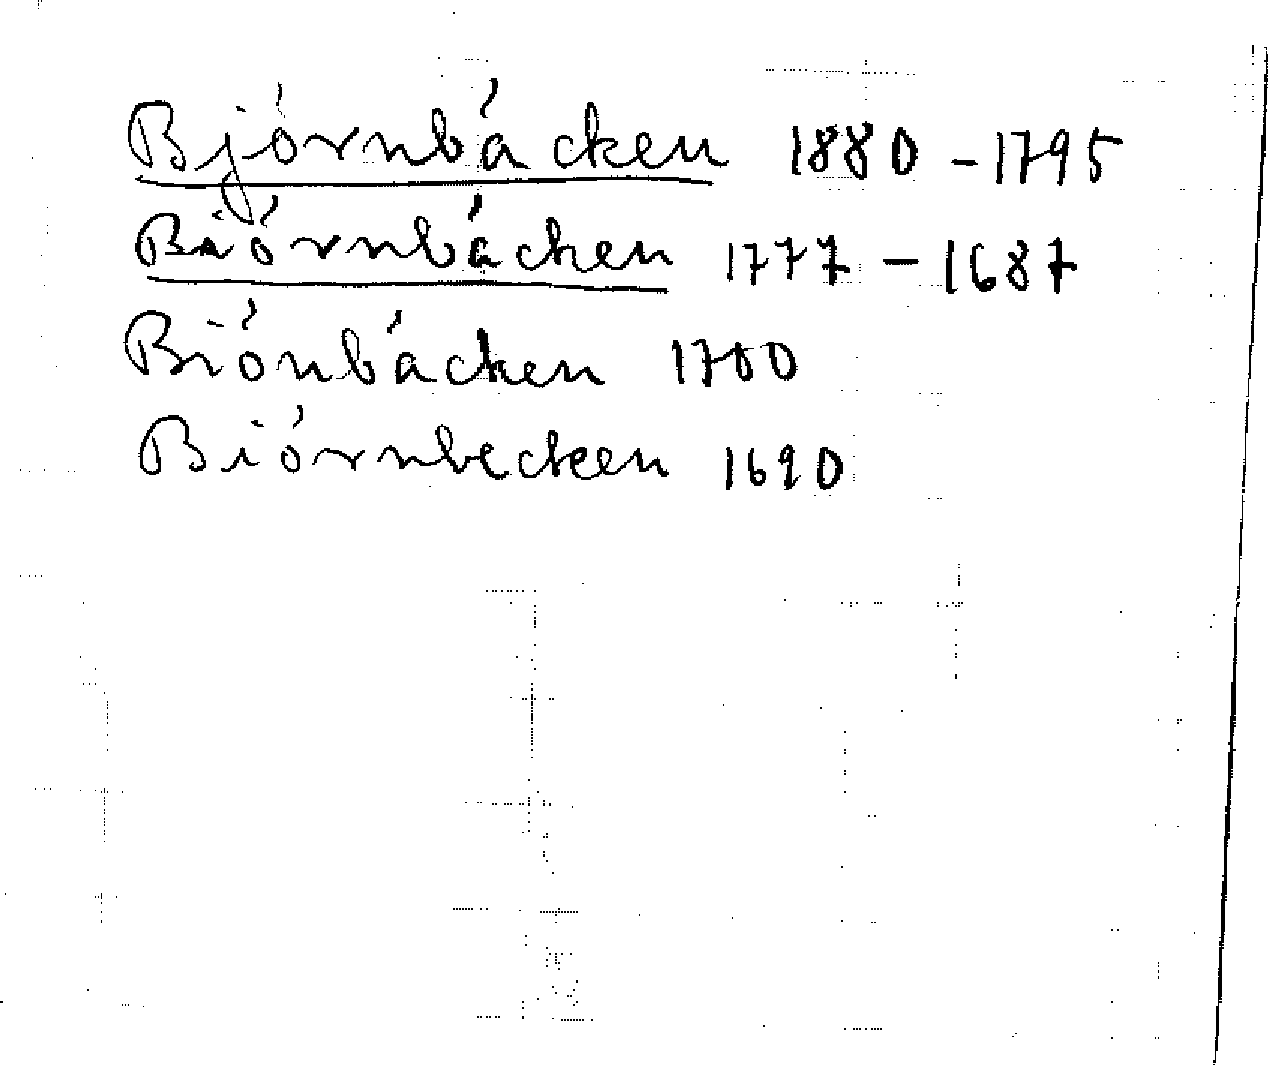 Björnbäcken 1880 - 1795
Biörnbäcken 1777 - 1687
Biönbäcken 1700
Biörnbecken 1690